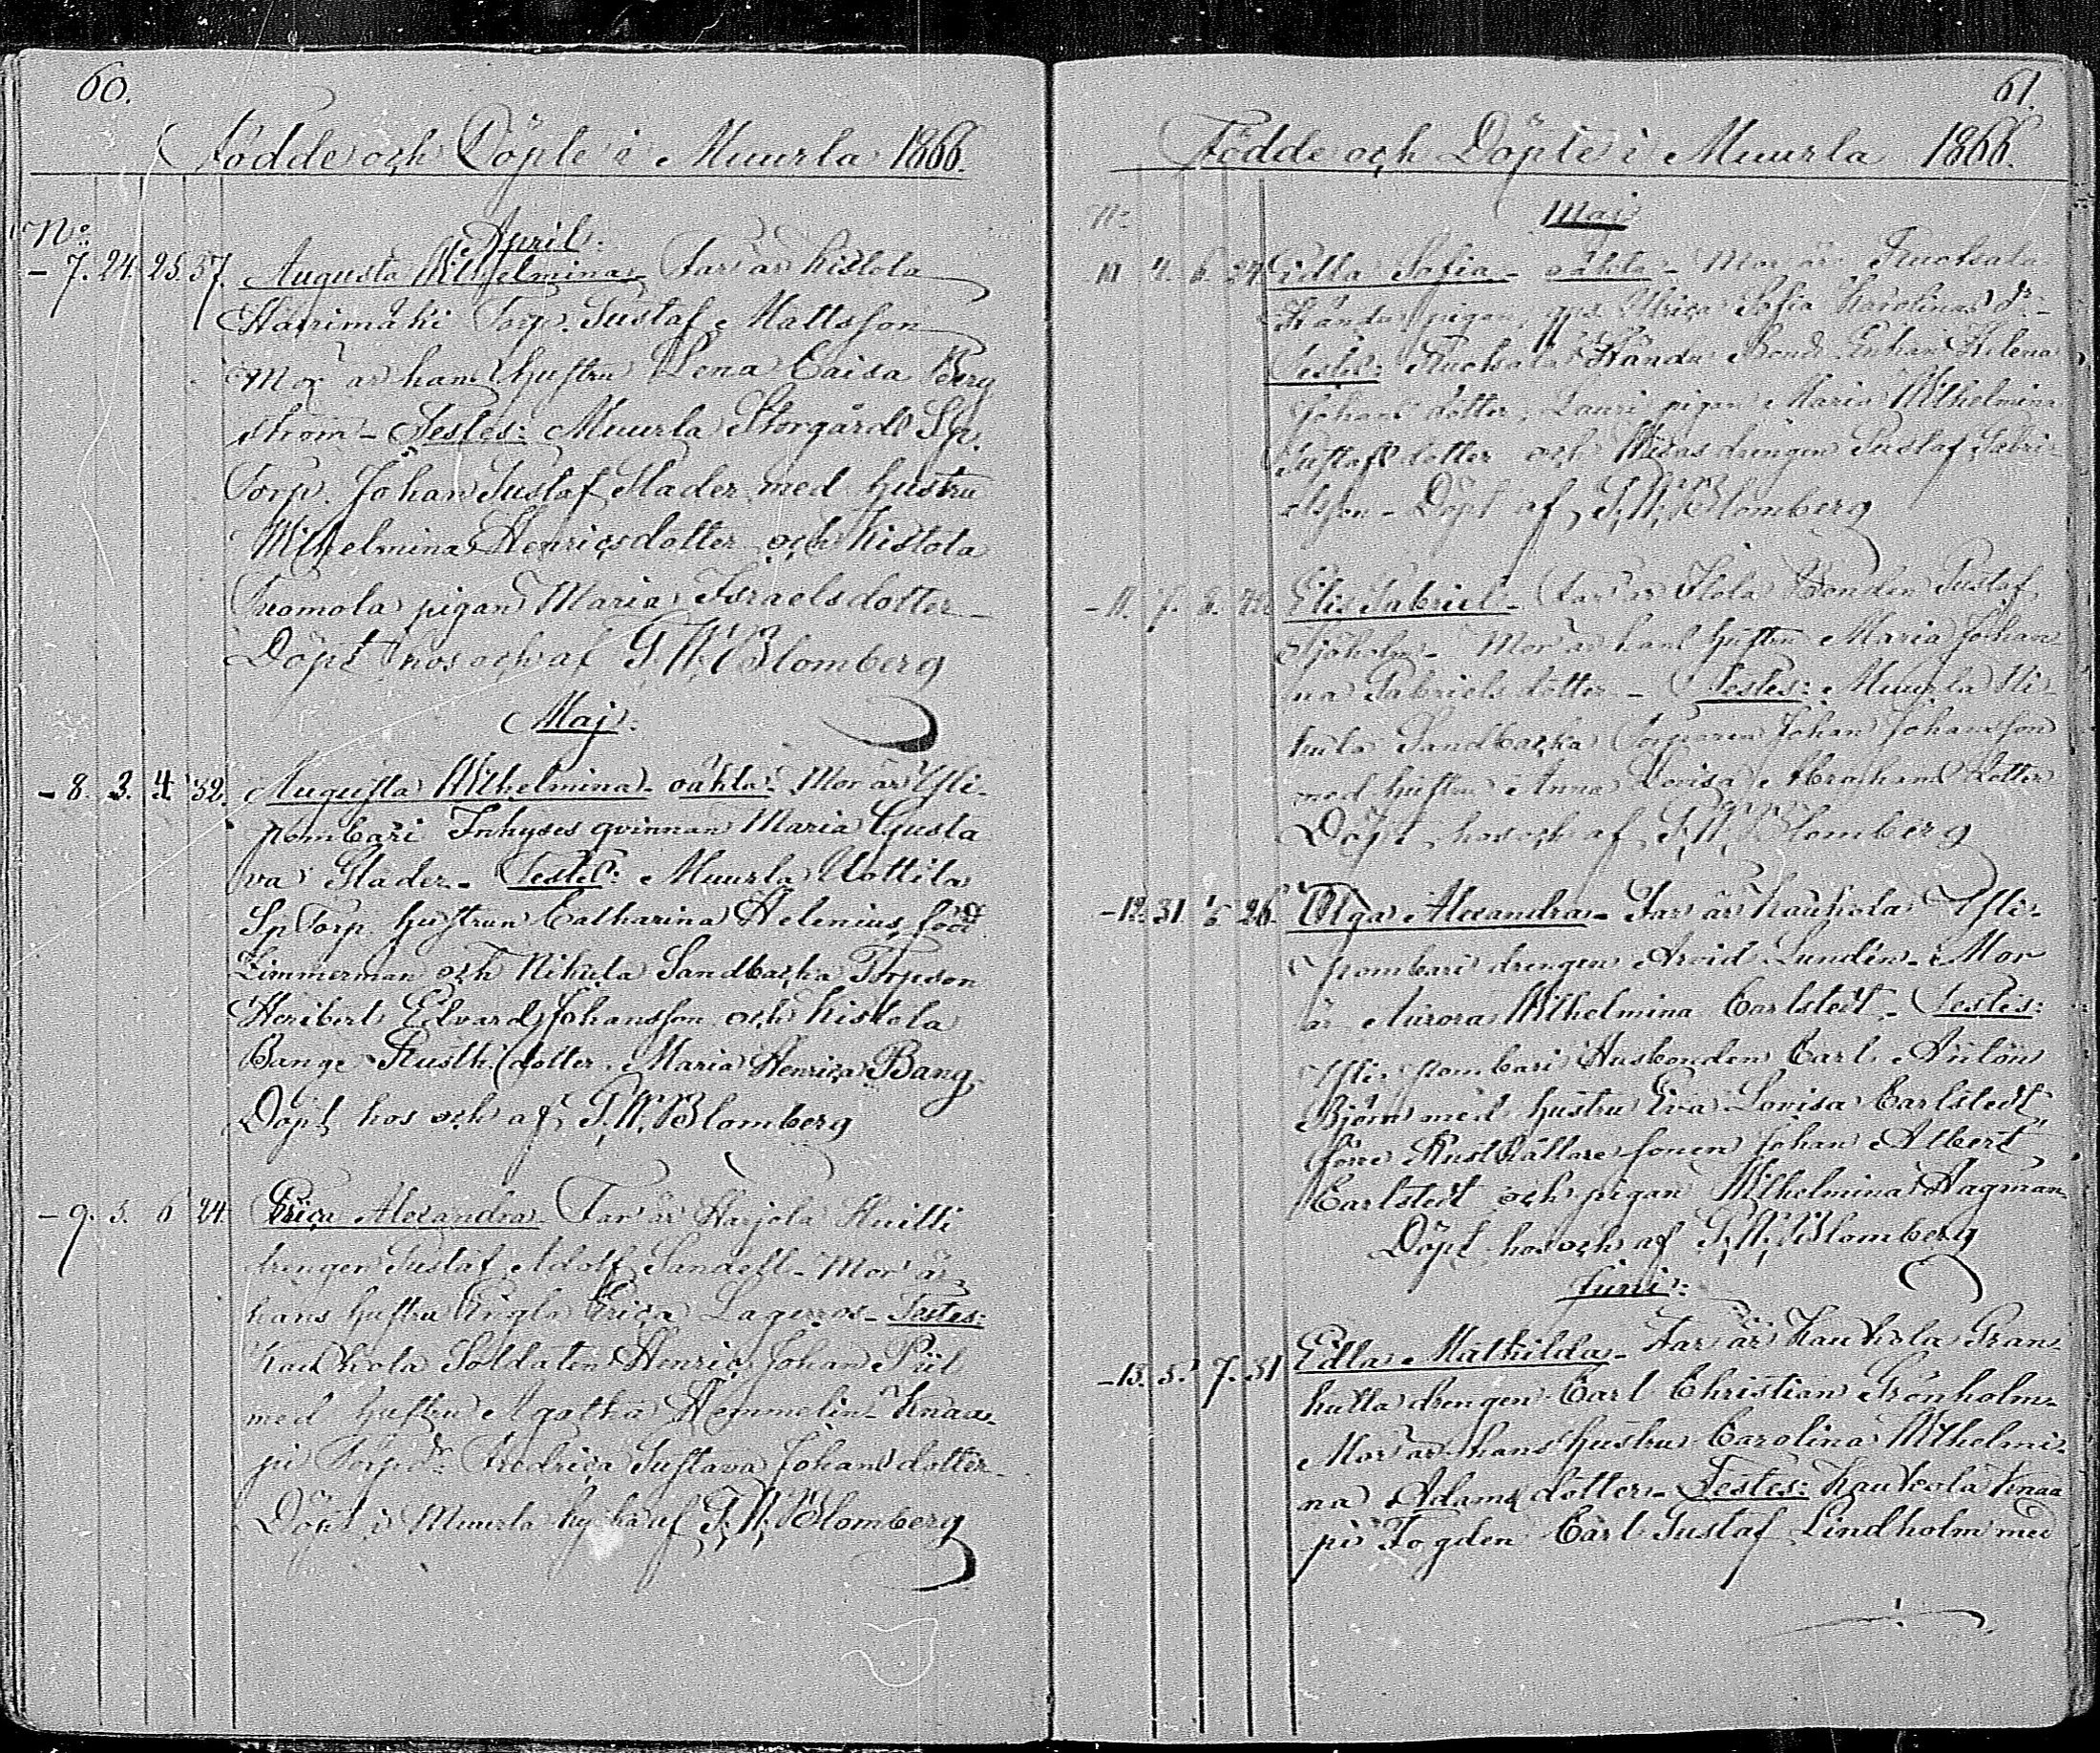 60.
Födde och Döpte i Muurla 1866.
No
April.
- 7. 24. 25. 37. Augusta Wilhelmina Far är Kistola
Harrimäki Torp. Gustaf Mattsson
Mor är hans hustru Lena Caisa Berg
ström - Testes: Muurla Storgårds Sp.
Torp. Johan Gustaf Slader med hustru
Wilhelmina Henricsdotter och Kistola
Tuomola pigan Maria Israelsdotter
Döpt hos och af G. W. Blomberg
Maj.
- 8. 3. 4. 32. Augusta Wilhelmina - oäkta - Mor är Yli-
pombari Inhyses qvinnan Maria Gusta
va Slader - Testes: Muurla Uottila
Sp Torp. hustrun Catharina Helenius född
Zimmerman och Nikula Sandbacka Torp.son
Heribert Edvard Johansson och Kistola
Bange Rusth. dotter Maria Henrica Bang.
Döpt hos och af G. W. Blomberg
- 9. 5. 6 24. Erica Alexandra Far är Harjola Huitti
drengen Gustaf Adolf Sandell - Mor är
hans hustru Engla Erica Lagerros - Testes:
Kaukola Soldaten Henric Johan Piil
med hustru Agatha Hemmelin - Knaa-
pi Torp.dr. Fredrica Gustava Johansdotter
Döpt i Muurla af G. W. Blomberg
61.
Födde och Döpte i Muurla 1866.
No
Maj
10 4. 6. 24. Edla Sofia - oäkta - Mor är Ruotsala
Händar pigan Ulrica Sofia Karolinas dr. -
Testes: Ruotsala Händar Bonde Enkan Helena
Johans dotter, Lauri pigan Maria Wilhelmina
Gustafs dotter och drengen Gustaf Gabri-
elsson - Döpt af G. W. Blomberg
- 11. 7. 8. Elis Gabriel - Far är Ilola Bonden Gustaf
Sjöholm - Mor är hans hustru Maria Johan
na Gabriels dotter - Testes: Muurla Ni-
kula Sandbacka Torparen Johan Johansson
med hustru Anna Lovisa Abrahams dotter
Döpt hos och af G. W. Blomberg
- 12. 31. 1/6 26. Olga Alexandra - Far är Kaukola Yli-
pombari drengen Arvid Lundén - Mor
är Aurora Wilhelmina Carlstedt - Testes:
Yli-pombari Husbonden Carl Anton
Björn med hustru Eva Lovisa Carlstedt,
före Rusthållare sonen Johan Albert
Carlstedt och pigan Wilhelmina Hagman
Döpt hos och af G. W. Blomberg
Juni:
- 13. 5. 7. 31 Edla Mathilda - Far är Kaukola Pran-
kulla drengen Carl Christian Grönholm -
Mor är hans hustru Carolina Wilhelmi-
na Adams dotter - Testes: Kaukola Knaa
pi Fogden Carl Gustaf Lindholm med